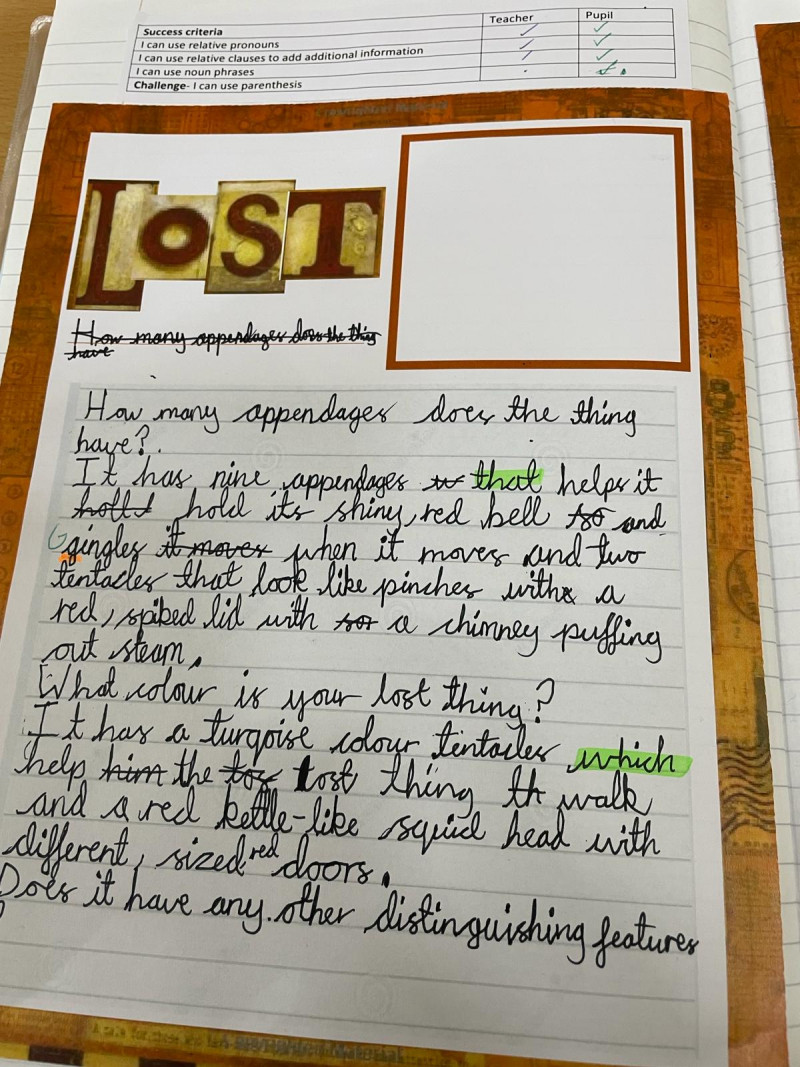 Teacher Pupil
Success criteria
I can use relative pronouns
I can use relative clauses to add additional information
I can use noun phrases
Challenge- I can use parenthesis
LOST
How many appendages does the thing
have
How many appendages does the thing
have?.
It has nine appendages that helps it
hold its shiny, red bell so and
Ggingles it moves when it moves and two
tentacles that look like pinches with a
red, spiked lid with a chimney puffing
out steam.
What colour is your lost thing?
It has a turqoise colour tentacles which
help him the toy lost thing th walk
and a red kettle-like squid head with
different, sized red doors.
Does it have any other distinguishing features
?